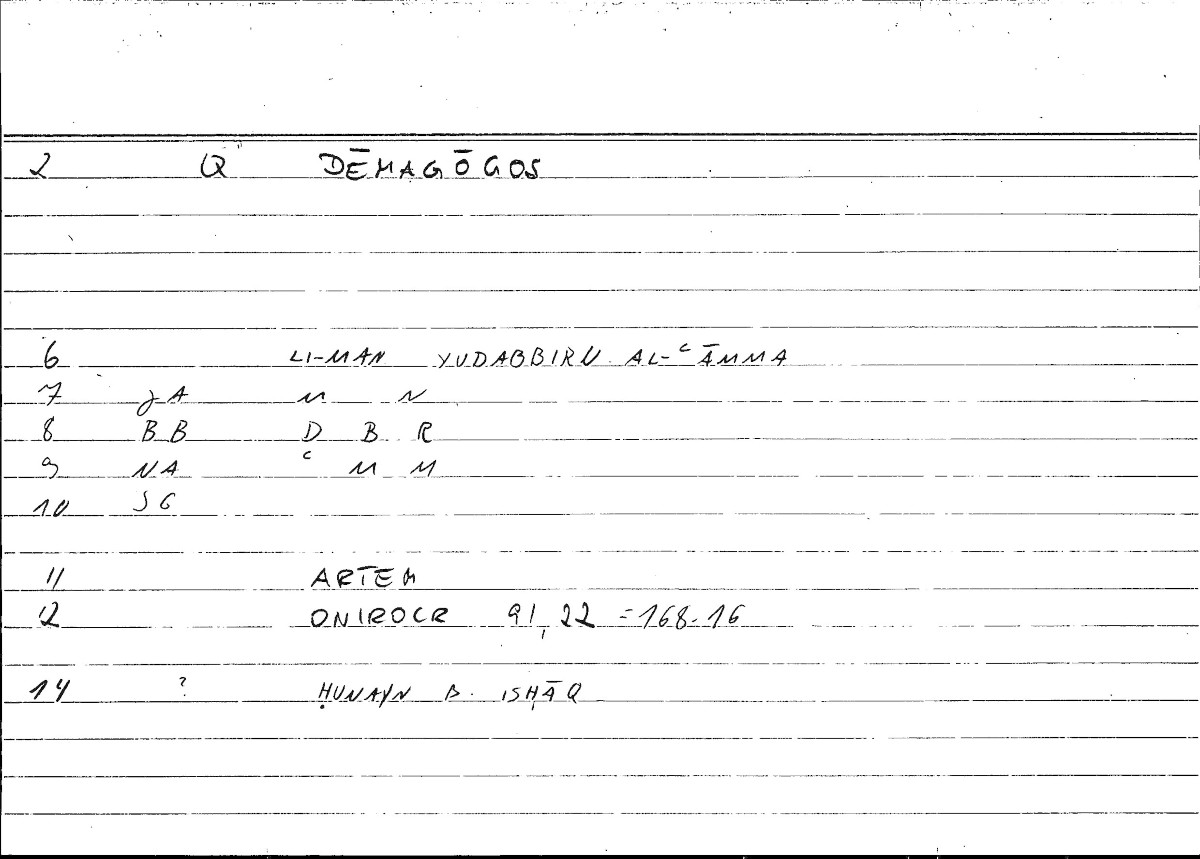 2 Q DĒMAGŌGOS
6 LI-MAN YUDABBIRU AL-ʿĀMMA
7 JA M N
8 BB D B R
9 NA ʿ M M
10 SG
11 ARTEM
12 ONIROCR 91,22 = 168.16
14 ? ḤUNAYN B. ISḤĀQ